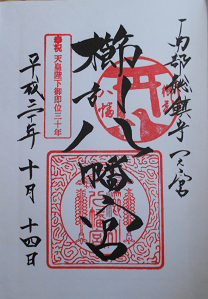 南部総鎮守 一之宮
奉祝 天皇陛下御即位三十年
八幡
櫛引八幡宮
平成三十年 十月 十四日